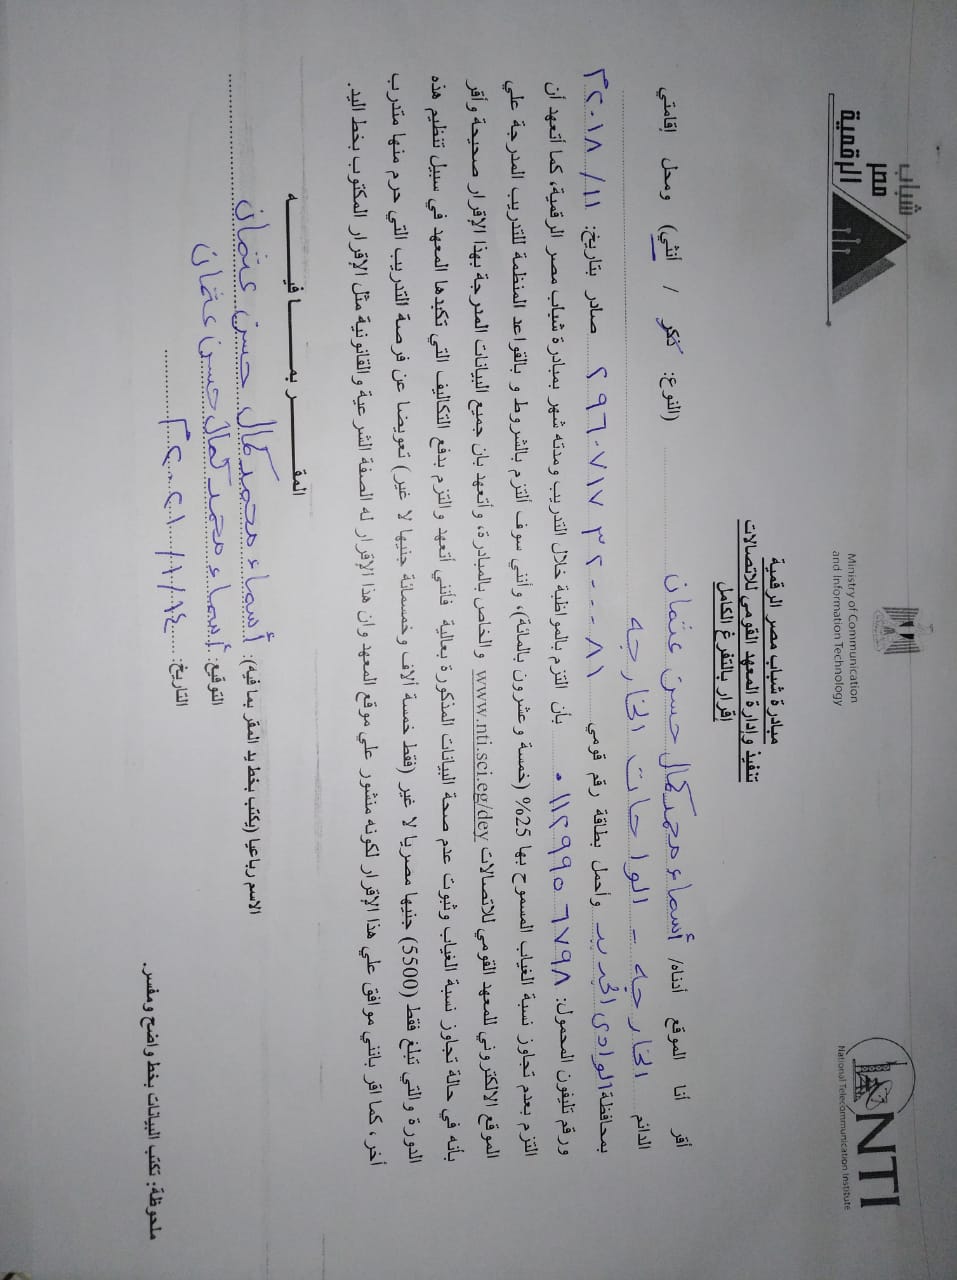 شباب
مصر
الرقمية
Ministry of Communication
and Information Technology
NTI
National Telecommunication Institute
مبادرة شباب مصر الرقمية
تنفيذ وإدارة المعهد القومي للاتصالات
إقرار بالتفرغ الكامل
أقر أنا الموقع أدناه/ أسماء محمد كمال حسن عثمان (النوع: ذكر / أنثي) ومحل إقامتي
الدائم الخارجه - الواحات الخارجه
بمحافظة الوادى الجديد وأحمل بطاقة رقم قومي ٢٩٦٠٧١٧٣٢٠٠٠٨١ صادر بتاريخ: ٢٠١٨/١١م
ورقم تليفون المحمول: ٠١١٢٩٩٥٦٧٩٨ بأن التزم بالمواظبة خلال التدريب ومدته شهر بمبادرة شباب مصر الرقمية، كما أتعهد أن
التزم بعدم تجاوز نسبة الغياب المسموح بها 25% (خمسة وعشرون بالمائة)، وأنني سوف ألتزم بالشروط و بالقواعد المنظمة للتدريب المدرجة علي
الموقع الالكتروني للمعهد القومي للاتصالات www.nti.sci.eg/dey والخاص بالمبادرة، وأتعهد بان جميع البيانات المدرجة بهذا الإقرار صحيحة وأقر
بأنه في حالة تجاوز نسبة الغياب وثبوت عدم صحة البيانات المذكورة بعالية فأنني أتعهد والتزم بدفع التكاليف التي تكبدها المعهد في سبيل تنظيم هذه
الدورة والتي تبلغ فقط (5500) جنيها مصريا لا غير (فقط خمسة ألاف وخمسمائة جنيها لا غير) تعويضا عن فرصة التدريب التي حرم منها متدرب
أخر، كما اقر بانني موافق علي هذا الإقرار لكونه منشور علي موقع المعهد وان هذا الإقرار له الصفة الشرعية والقانونية مثل الإقرار المكتوب بخط اليد.
المقـــــر بمـــــا فيـــــه
الاسم رباعيا (يكتب بخط يد المقر بما فيه): أسماء محمد كمال حسن عثمان
التوقيع: أسماء محمد كمال حسن عثمان
التاريخ: ٢٠٢١/١/١٤م
ملحوظة: تكتب البيانات بخط واضح ومفسر.